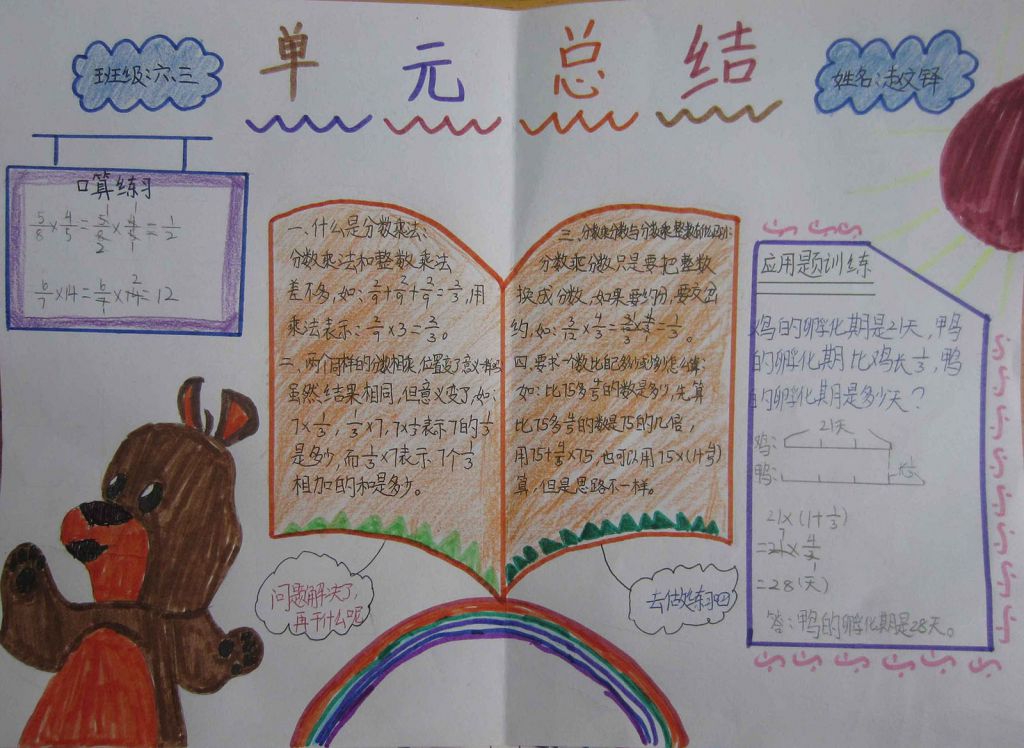 单元总结
班级:六、三
姓名:赵文铎
口算练习
5/8×4/5=5/8×4/5=1/2
6/7×14=6/7×14=12
一、什么是分数乘法:
分数乘法和整数乘法
差不多,如:2/9+2/9+2/9=2/3,用
乘法表示:2/9×3=2/3。
二、两个同样的分数相乘,位置变了意义
虽然结果相同,但意义变了,如:
7×1/3,1/3×7,7×1/3表示7的1/3
是多少,而1/3×7表示7个1/3
相加的和是多少。
三、分数乘分数与分数乘整数
分数乘分数只是要把整数
换成分数,如果要约分,要交叉
约,如:
四、要求一个数比已知多几分之几
如:比75多的数是多少,先算
比75多的数是75的几倍,
用75+ ×75,也可以用75×(1+ )
算,但是思路不一样。
问题解决了,
再干什么呢
去做练习吧
应用题训练
鸡的孵化期是21天,鸭
的孵化期比鸡长1/3,鸭
的孵化期是多少天?
21天
鸡:
鸭:
长1/3
21×(1+1/3)
=21×4/3
=28(天)
答:鸭的孵化期是28天。